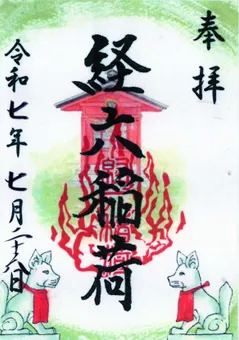 奉拝
経六稲荷
令和七年七月二十八日